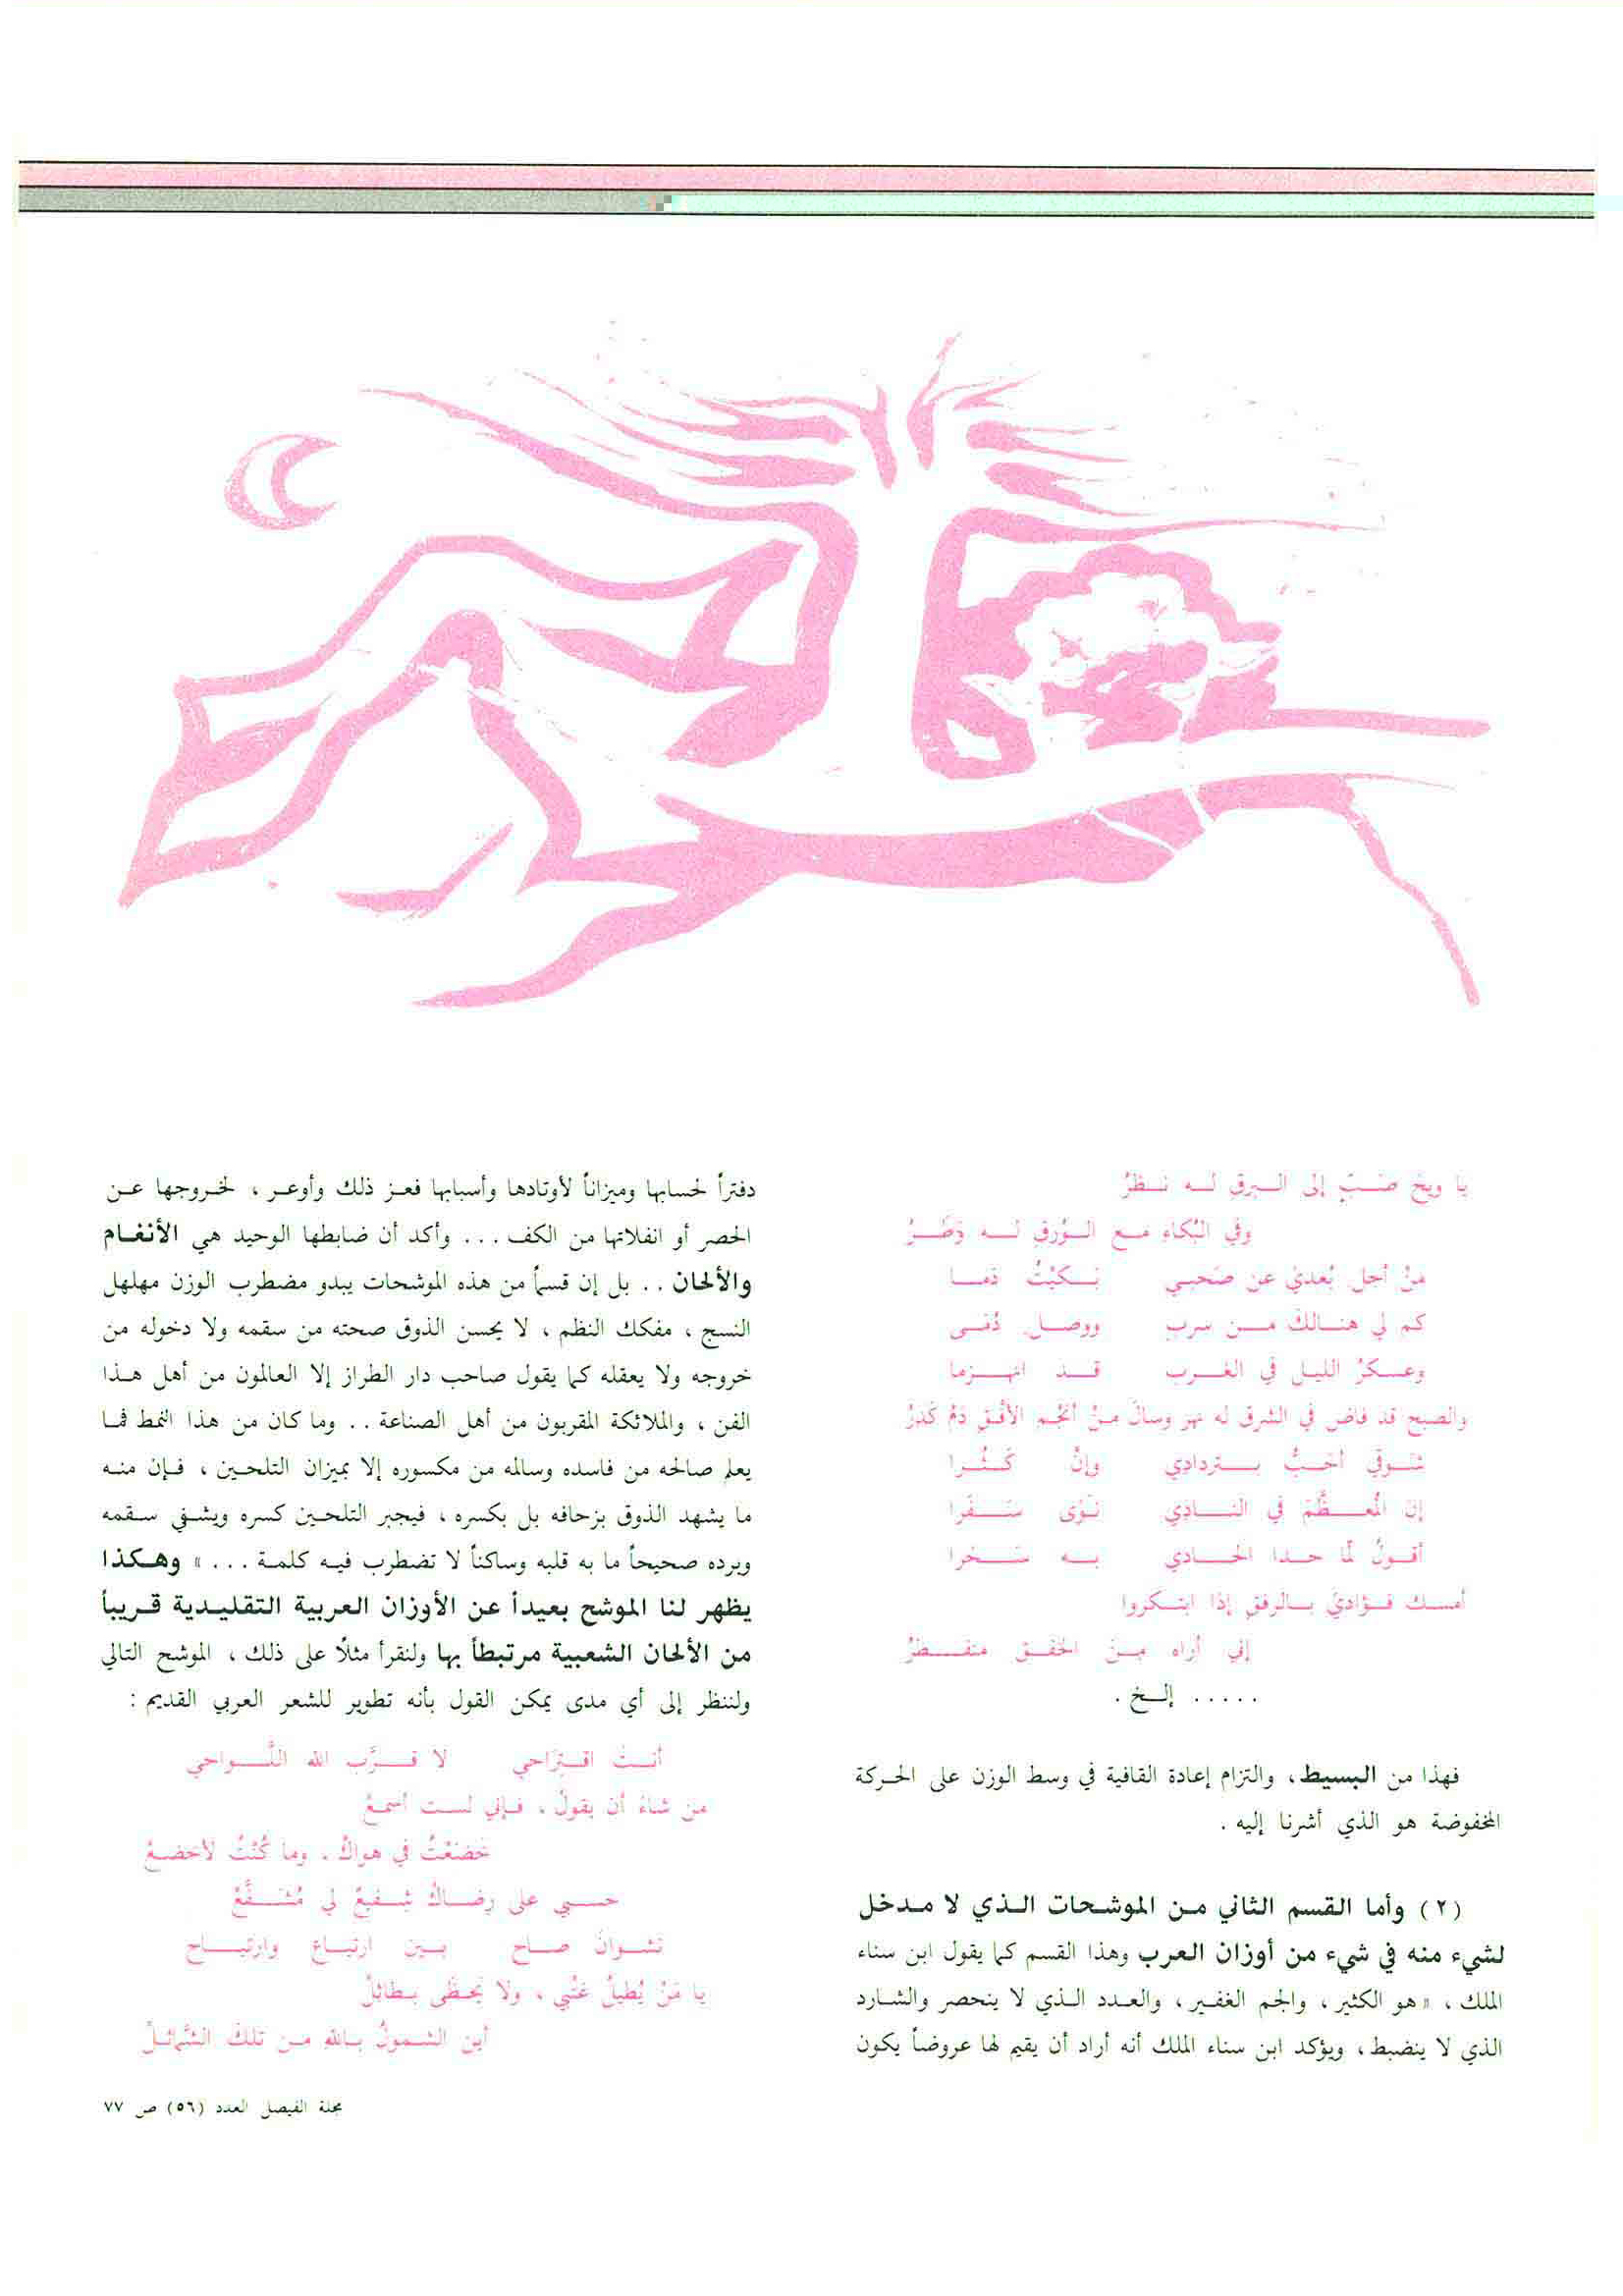 يا ويحَ صبٍّ إلى البرقِ له نظرُ
وفي البُكاءِ مع الوُرقِ له وَطَرُ
منْ أجل بُعديْ عن صَحبي بكيْتُ دَما
كم لي هنالكَ من سرب ووصل دُمَى
وعسكرُ الليل في الغرب قد انهزما
والصبح قد فاض في الشرق له نهر وسالَ منْ أنجُم الأفْقِ دَمٌ كَدِرُ
شوقي أحَبُّ بتردادِي وإنْ كَثُرا
إن المُعظَّمَ في النادِي نَوَى سَفَرا
أقولُ لمَّا حدا الحادي به سَحَرا
أمسك فؤاديَ بالرفقِ إذا ابتكروا
إني أراه منَ الخفقِ منفطرُ
..... إلخ .
فهذا من البسيط، والتزام إعادة القافية في وسط الوزن على الحركة
المخفوضة هو الذي أشرنا إليه .
(٢) وأما القسم الثاني من الموشحات الذي لا مدخل
لشيء منه في شيء من أوزان العرب وهذا القسم كما يقول ابن سناء
الملك ، «هو الكثير، والجم الغفير، والعدد الذي لا ينحصر والشارد
الذي لا ينضبط، ويؤكد ابن سناء الملك أنه أراد أن يقيم لها عروضاً يكون
دفتراً لحسابها وميزاناً لأوتادها وأسبابها فعز ذلك وأوعر ، لخروجها عن
الحصر أو انفلاتها من الكف ... وأكد أن ضابطها الوحيد هي الأنغام
والألحان .. بل إن قسماً من هذه الموشحات يبدو مضطرب الوزن مهلهل
النسج ، مفكك النظم ، لا يحسن الذوق صحته من سقمه ولا دخوله من
خروجه ولا يعقله كما يقول صاحب دار الطراز إلا العالمون من أهل هذا
الفن ، والملائكة المقربون من أهل الصناعة .. وما كان من هذا النمط فما
يعلم صالحه من فاسده وسالمه من مكسوره إلا بميزان التلحين ، فإن منه
ما يشهد الذوق بزحافه بل بكسره ، فيجبر التلحين كسره ويشفي سقمه
ويرده صحيحاً ما به قلبه وساكناً لا تضطرب فيه كلمة ... » وهكذا
يظهر لنا الموشح بعيداً عن الأوزان العربية التقليدية قريباً
من الألحان الشعبية مرتبطاً بها ولنقرأ مثلاً على ذلك ، الموشح التالي
ولننظر إلى أي مدى يمكن القول بأنه تطوير للشعر العربي القديم :
أنتَ اقتِرَاحي لا قرَّب الله اللَّواحي
من شاءَ أن يقولُ ، فإني لست أسمعُ
خَضَعْتُ في هواكْ ، وما كُنْتُ لأخضعُ
حسبي على رِضاكْ شفيعٌ لي مُشَفَّعْ
نشوانَ صاح بين ارتياع وارتياح
يا مَنْ يُطيلُ عَتْبي ، ولا يَحظَى بطائلْ
أين الشمولُ بالله من تلكَ الشَّمائلْ
مجلة الفيصل العدد (٥٦) ص ٧٧